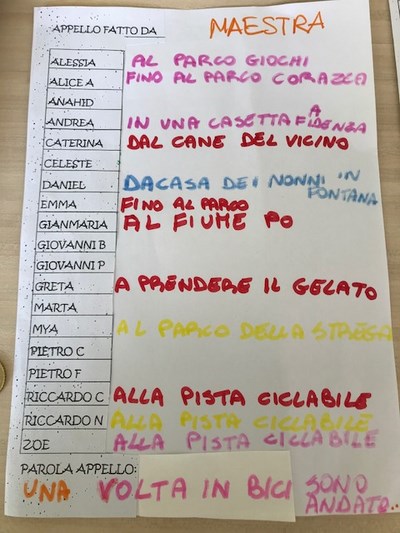 APPELLO FATTO DA MAESTRA
ALESSIA AL PARCO GIOCHI
ALICE A FINO AL PARCO CORAZZA
ANAHID
ANDREA IN UNA CASETTA A FIDENZA
CATERINA DAL CANE DEL VICINO
CELESTE
DANIEL DA CASA DEI NONNI IN FONTANA
EMMA FINO AL PARCO
GIANMARIA AL FIUME PO
GIOVANNI B
GIOVANNI P
GRETA A PRENDERE IL GELATO
MARTA
MYA AL PARCO DELLA STREGA
PIETRO C
PIETRO F
RICCARDO C ALLA PISTA CICLABILE
RICCARDO N ALLA PISTA CICLABILE
ZOE ALLA PISTA CICLABILE
PAROLA APPELLO:
UNA VOLTA IN BICI SONO ANDATO...